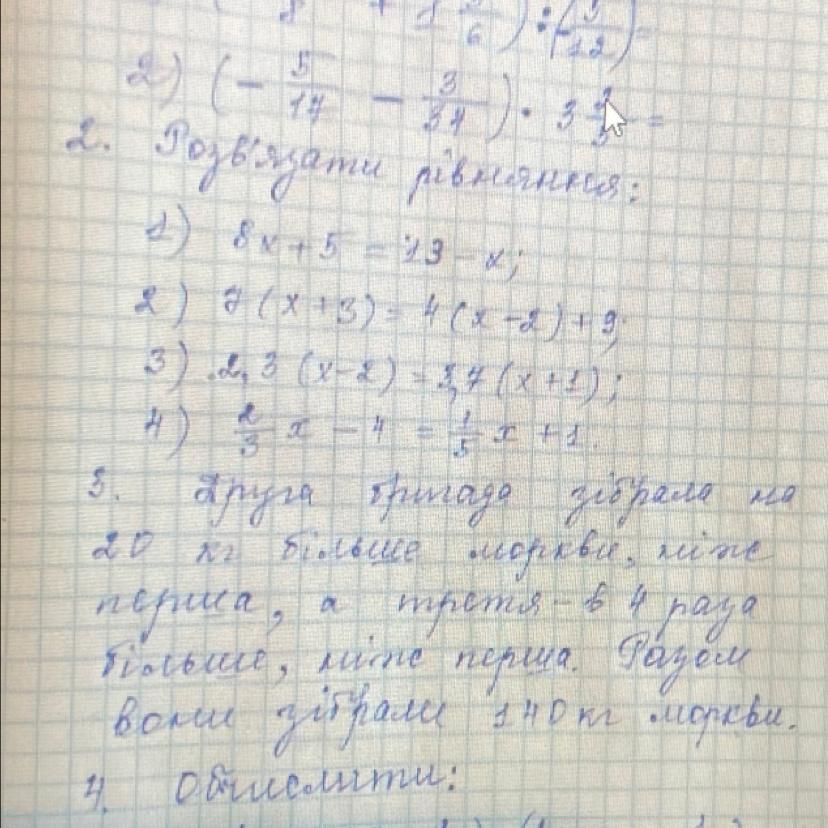 6 ) : (- 3/12) =
2) (- 5/17 - 3/34) · 3
2. Розв'язати рівняння:
1) 8x + 5 = 13 - x;
2) 7(x+3) = 4(x-2)+9;
3) 2,3 (x-2) = 3,7 (x+1);
4) 2/3 x - 4 = 1/5 x + 1.
3. Друга бригада зібрала на
20 кг більше моркви, ніж
перша, а третя - в 4 раза
більше, ніж перша. Разом
вони зібрали 140 кг моркви.
4. Обчислити: